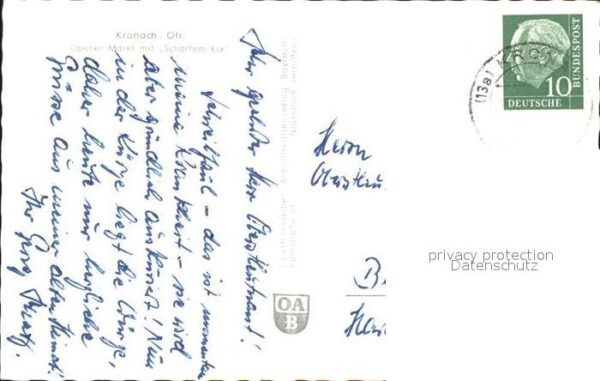 Kronach Ofr.
Oberer Markt mit „Scharfem Eck"
Sehr geehrter Herr Oberstleutnant!
Schreibfaul – das ist momentan
meine Krankheit – sie wird
aber gründlich auskuriert! Nun
in der Kürze liegt die Würze,
daher heute nur herzliche
Grüsse aus meiner alten Heimat.
Ihr Georg
OA
B
Herrn
Oberstleu
B
(13a) KRO
10
DEUTSCHE
BUNDESPOST
privacy protection
Datenschutz